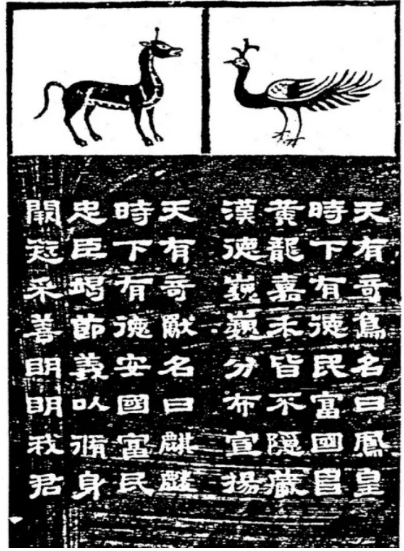 天有奇鳥名曰鳳皇
時下有德民富國昌
黃龍嘉禾皆不隱藏
漢德巍巍分布宣揚
天有奇獸名曰麒麟
時下有德安國富民
忠臣竭節義以脩身
闕愆采善明明我君